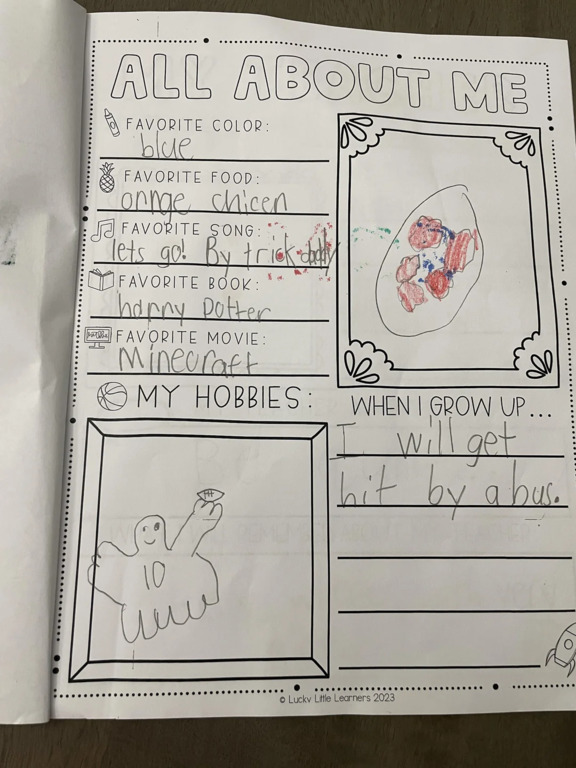 ALL ABOUT ME
FAVORITE COLOR:
blue
FAVORITE FOOD:
onnge chicen
FAVORITE SONG:
lets go! By trick daddy
FAVORITE BOOK:
harry Potter
FAVORITE MOVIE:
Minecraft
MY HOBBIES:
10
WHEN I GROW UP...
I will get
hit by a bus.
© Lucky Little Learners 2023